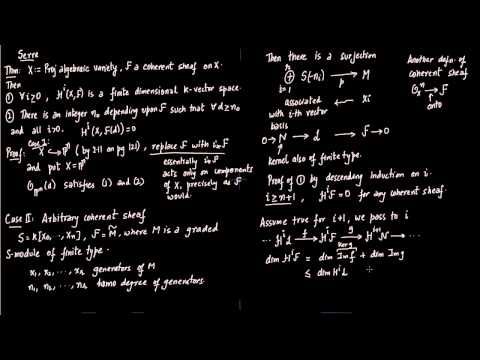 Serre
Thm: X := Proj algebraic variety, F a coherent sheaf on X.
Then
① ∀ i ≥ 0, Hⁱ(X,F) is a finite dimensional k-vector space.
② There is an integer n₀ depending upon F such that ∀ d ≥ n₀
and all i > 0. Hⁱ(X,F(d)) = 0
Case I:
Proof: X ↪ Pⁿ (by 2.11 on pg 121), replace F with i∗F
and put X = Pⁿ
essentially i∗F
acts only on components
of X, precisely as F
would.
O_Pⁿ(a) satisfies (1) and (2)
Case II: Arbitrary coherent sheaf
S = K[x₀, .., xₙ], F = M̃, where M is a graded
S-module of finite type.
x₁, x₂, ..., xᵣ generators of M
n₁, n₂, ..., nᵣ homo degree of generators
Then there is a surjection
r ⊕ i=1 S(-nᵢ) → p M
associated ← xᵢ
with i-th vector
basis
0 → N → L → F → 0
Kernel also of finite type.
Another defn. of
coherent sheaf
→ F
onto
Proof of ① by descending induction on i.
i ≥ n+1, HⁱF = 0 for any coherent sheaf.
Assume true for i+1, we pass to i
... HⁱL → f HⁱF → g Hⁱ⁺¹N → ...
ker g
dim HⁱF = dim Im f + dim Im g
≤ dim HⁱL